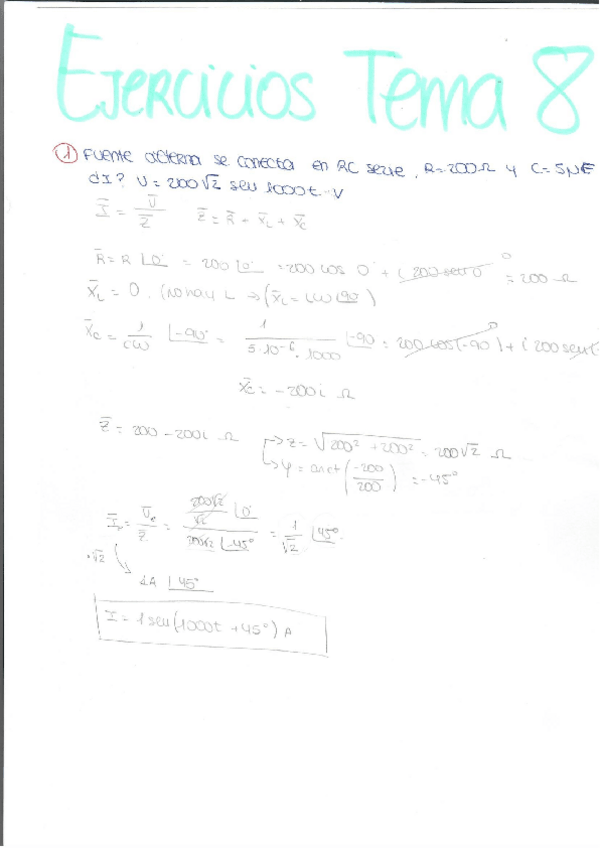 EJERCICIOS Tema 8
① Fuente alterna se conecta en RC serie, R=200Ω y C=5μF
¿I? U=200√2 seu 1000t V
Ī = Ū/Z̄   Z̄ = R̄ + X̄L + X̄C
R̄ = R |0° = 200 |0° = 200 cos 0 + i 200 seu 0 = 200 Ω
0
X̄L = 0. (no hay L → (X̄L = LW |90)
X̄C = 1/CW |-90° = 1/(5·10⁻⁶·1000) |-90 = 200 cos(-90) + i 200 seu(-
0
X̄C = -200i Ω
Z̄ = 200 - 200i Ω   → Z = √(200² + 200²) = 200√2 Ω
→ φ = arct(-200/200) = -45°
Īe = Ūe/Z̄ = (200√2/√2 |0°)/(200√2 |-45°) = 1/√2 |45°.
·√2
1A |45°
I = 1 seu(1000t + 45°) A